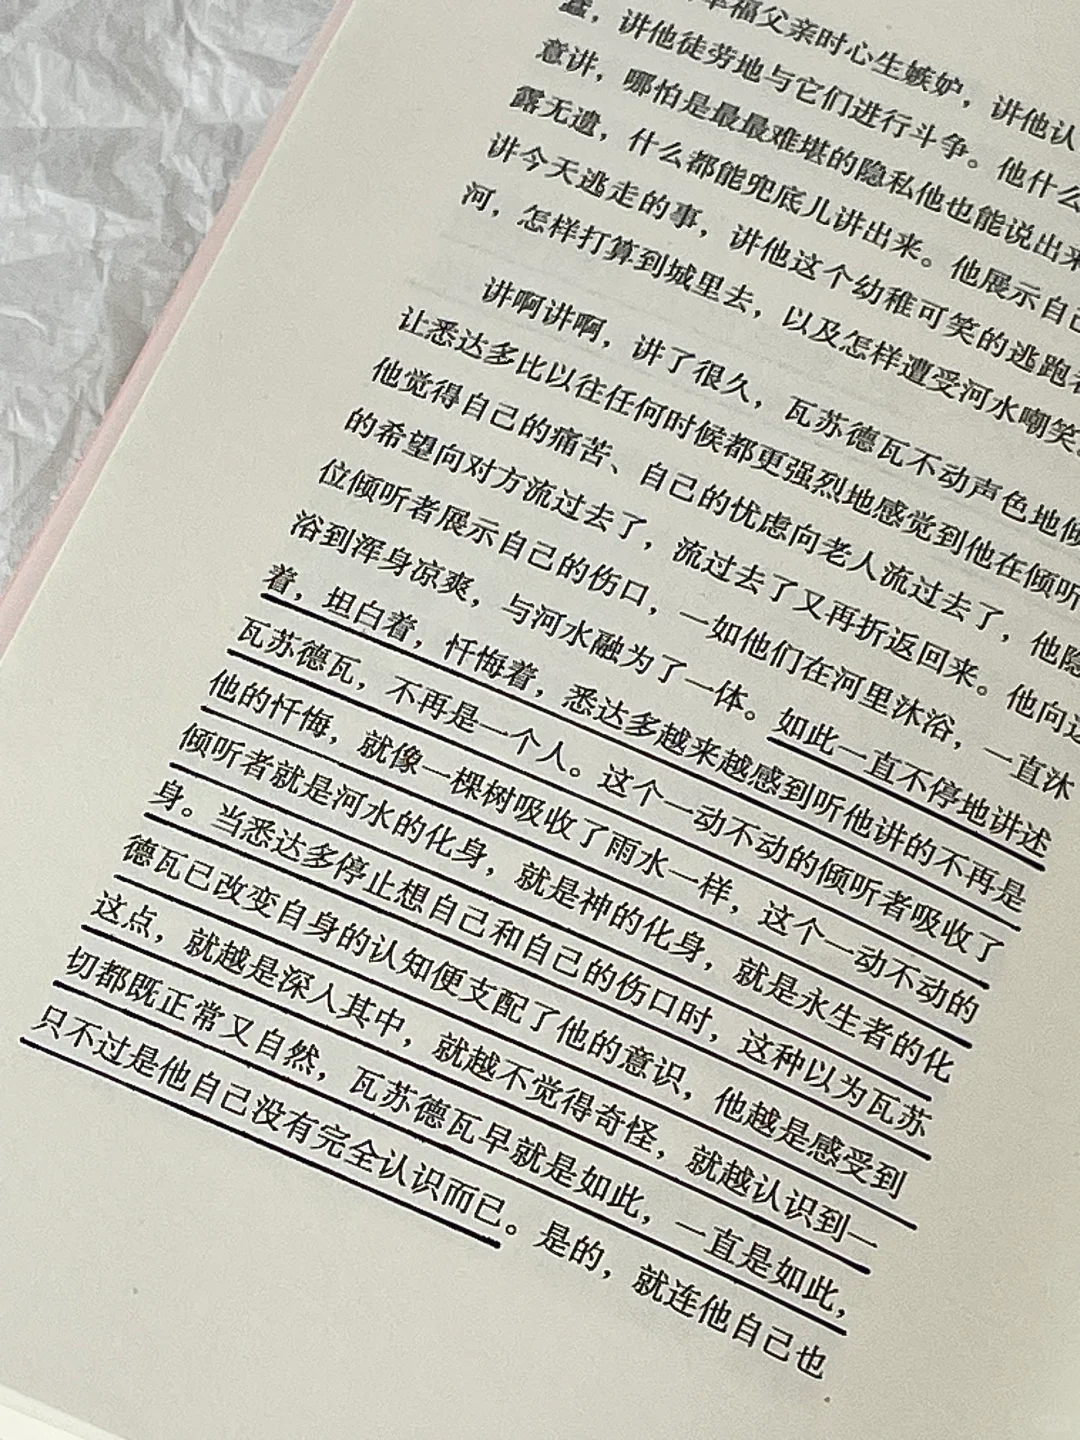 幸福父亲时心生嫉妒，讲他认
蠢，讲他徒劳地与它们进行斗争。他什么
意讲，哪怕是最最难堪的隐私他也能说出来
露无遗，什么都能兜底儿讲出来。他展示自己
讲今天逃走的事，讲他这个幼稚可笑的逃跑者
河，怎样打算到城里去，以及怎样遭受河水嘲笑。
讲啊讲啊，讲了很久，瓦苏德瓦不动声色地倾
让悉达多比以往任何时候都更强烈地感觉到他在倾听
他觉得自己的痛苦、自己的忧虑向老人流过去了，他隐
的希望向对方流过去了，流过去了又再折返回来。他向这
位倾听者展示自己的伤口，一如他们在河里沐浴，一直沐
浴到浑身凉爽，与河水融为了一体。如此一直不停地讲述
着，坦白着，忏悔着，悉达多越来越感到听他讲的不再是
瓦苏德瓦，不再是一个人。这个一动不动的倾听者吸收了
他的忏悔，就像一棵树吸收了雨水一样，这个一动不动的
倾听者就是河水的化身，就是神的化身，就是永生者的化
身。当悉达多停止想自己和自己的伤口时，这种以为瓦苏
德瓦已改变自身的认知便支配了他的意识，他越是感受到
这点，就越是深入其中，就越不觉得奇怪，就越认识到一
切都既正常又自然，瓦苏德瓦早就是如此，一直是如此，
只不过是他自己没有完全认识而已。是的，就连他自己也